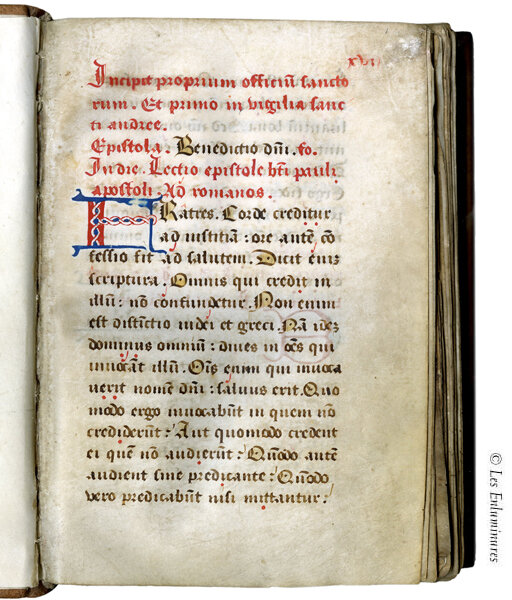 xvi
Incipit proprium officiũ sancto
rum. Et primo in vigilia sanc
ti andree.
Epistola. Benedictio dñi. fo.
In die. Lectio epistole bti pauli
apostoli. Ad romanos.
FRatres. Corde creditur
ad iustitiã: ore autẽ cõ
fessio fit ad salutem. Dicit eniz
scriptura. Omnis qui credit in
illũ: nõ confundetur. Non enim
est distinctio iudei et greci. Nã idez
dominus omniũ: diues in oẽs qui
inuocãt illũ. Oĩs enim qui inuoca
uerit nomẽ dñi: saluus erit. Quo
modo ergo inuocabũt in quem nõ
crediderũt: Aut quomodo credent
ei quẽ nõ audierũt: Quõdo autẽ
audient sine predicante: Quõdo
vero predicabũt nisi mittantur:
© Les Enluminures